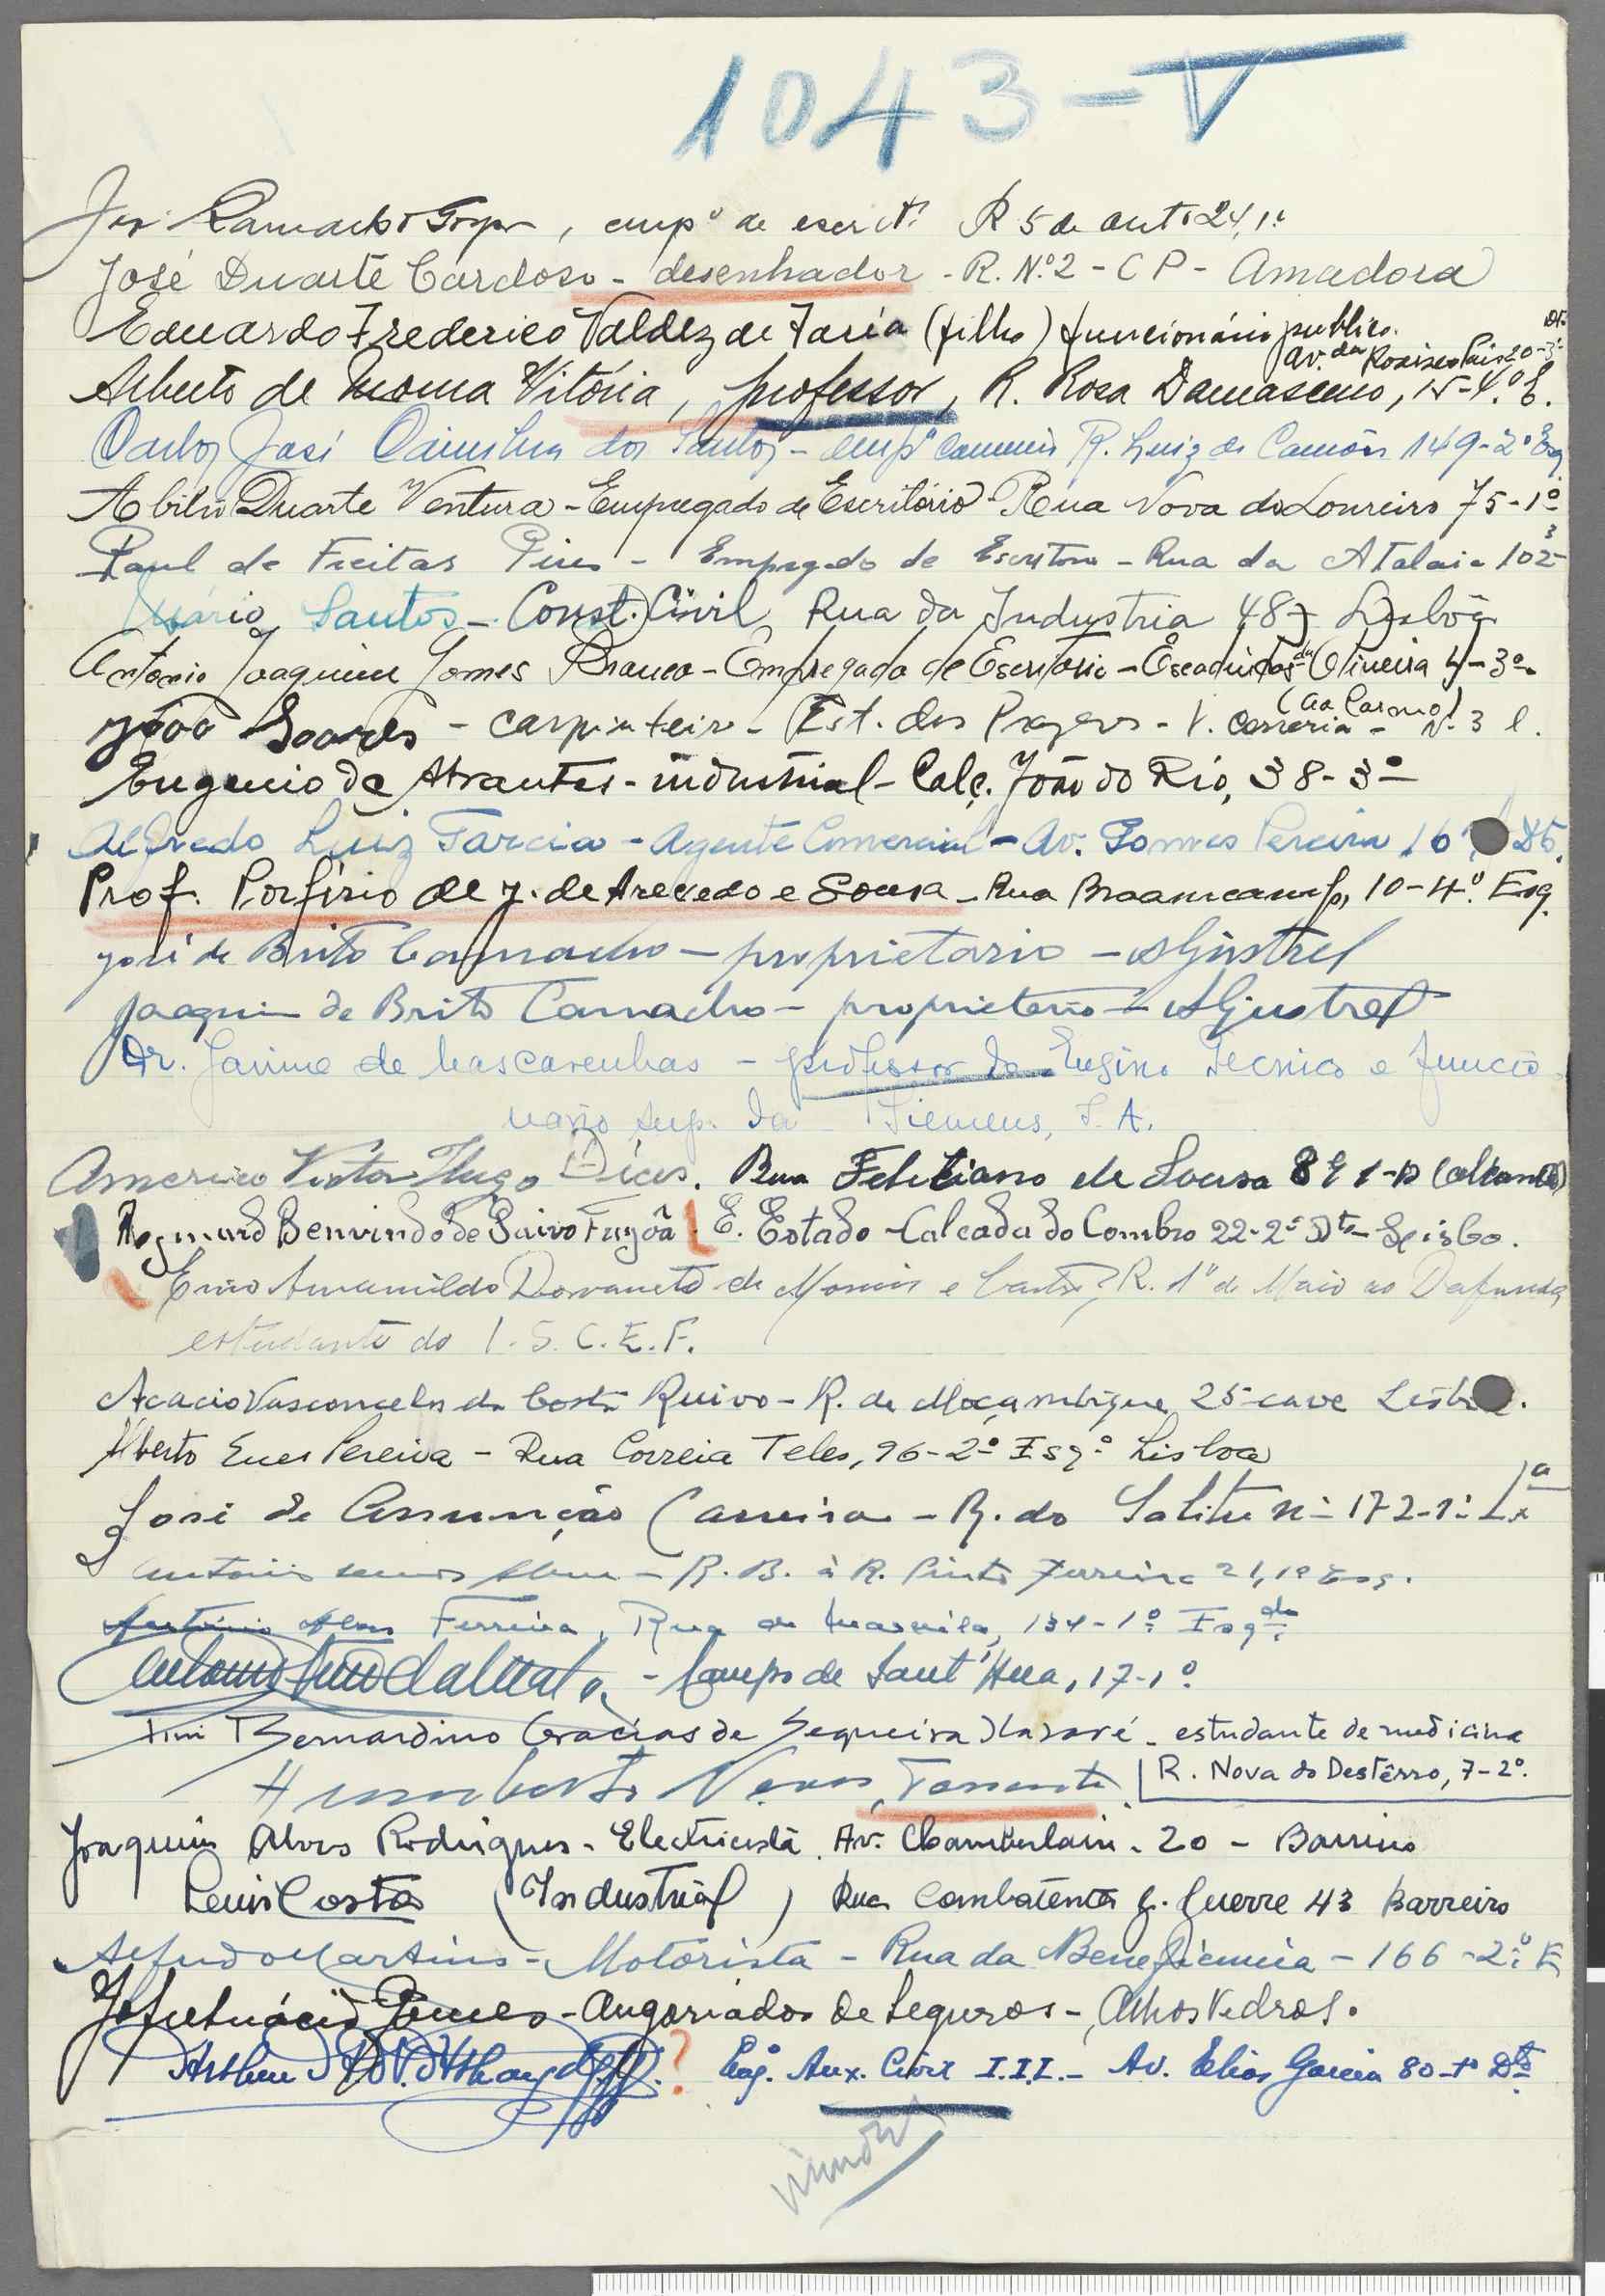 1043-V
emp.º de escrit.º R 5 de 24, 1.º
José Duarte Cardoso - desenhador - R. N.º 2 - C P - Amadora
Eduardo Frederico Valdez de Faria (filho) funcionário publico.
Av. da 20-3º Dtº
Alberto de Moma Vitória, professor, R. Rosa Damasceno, 15-4.º E.
Carlos José dos Santos - emp.º R. Luiz de Camões 149-2º Esq
Abilio Duarte Ventura - Empregado de Escritório - Rua Nova do Loureiro 75-1º
Raul de Freitas Pires - Empregado de Escritorio - Rua da Atalaia 102
Mário Santos - Const. Civil, Rua da Industria 48 Lisbôa
Antonio Joaquim Gomes Branco - Empregado de Escritorio - Escadinhas da Oliveira 4-3º
(ao Carmo)
João Soares - carpinteiro - Est. dos Prazeres - V. N. 3 l.
Eugenio de Abrantes - industrial - Calç. João do Rio, 38-3º
Alfredo Luiz Garcia - Agente Comercial - Av. Gomes Pereira, 16, Dt.
Prof. Porfírio de J. de Azevedo e Sousa - Rua Braamcamp, 10-4º Esq.
José de Brito Camacho - proprietario - Aljustrel
Joaquim de Brito Camacho - proprietario - Aljustrel
Dr. Jaime de Mascarenhas - professor do Ensino Tecnico e funcio-
nário sup. da Siemens, S.A.
Americo Victor Hugo Dias. Rua Feliciano de Sousa
Benvindo de Paiva - E. Estado - Calçada do Combro 22-2º Dto - Lisboa.
de Morais e Castro, R. 1º de Maio ao Dafundo
estudante do I.S.C.E.F.
Acacio Vasconcelos da Costa Ruivo - R. de Moçambique 25 cave Lisboa.
Alberto Enes Pereira - Rua Correia Teles, 96-2º Esqº Lisboa
José de Assunção Carreira - R. do Salitre nº 172-1º Lxª
R. B. à R. Pinto Ferreira 21, 1º Esq.
António Alves Ferreira, Rua 134-1º Esqdo
da Mata - Campo de Sant'Ana, 17-1º
Bernardino Gracias de Sequeira Nazaré - estudante de medicina
R. Nova do Destêrro, 7-2º.
Humberto Neves, Tenente
Joaquim Alves Rodrigues - Electricista, Av. Chamberlain - 20 - Barreiro
Luis Costa (Industrial), Rua Combatentes G. Guerra 43 Barreiro
Alfredo Martins - Motorista - Rua da Beneficência - 166-2º E
Gomes - Angariador de Seguros - Alhos Vedros.
? Eng.º Aux. Civil I.I.L. - Av. Elias Garcia 80-1º Dto